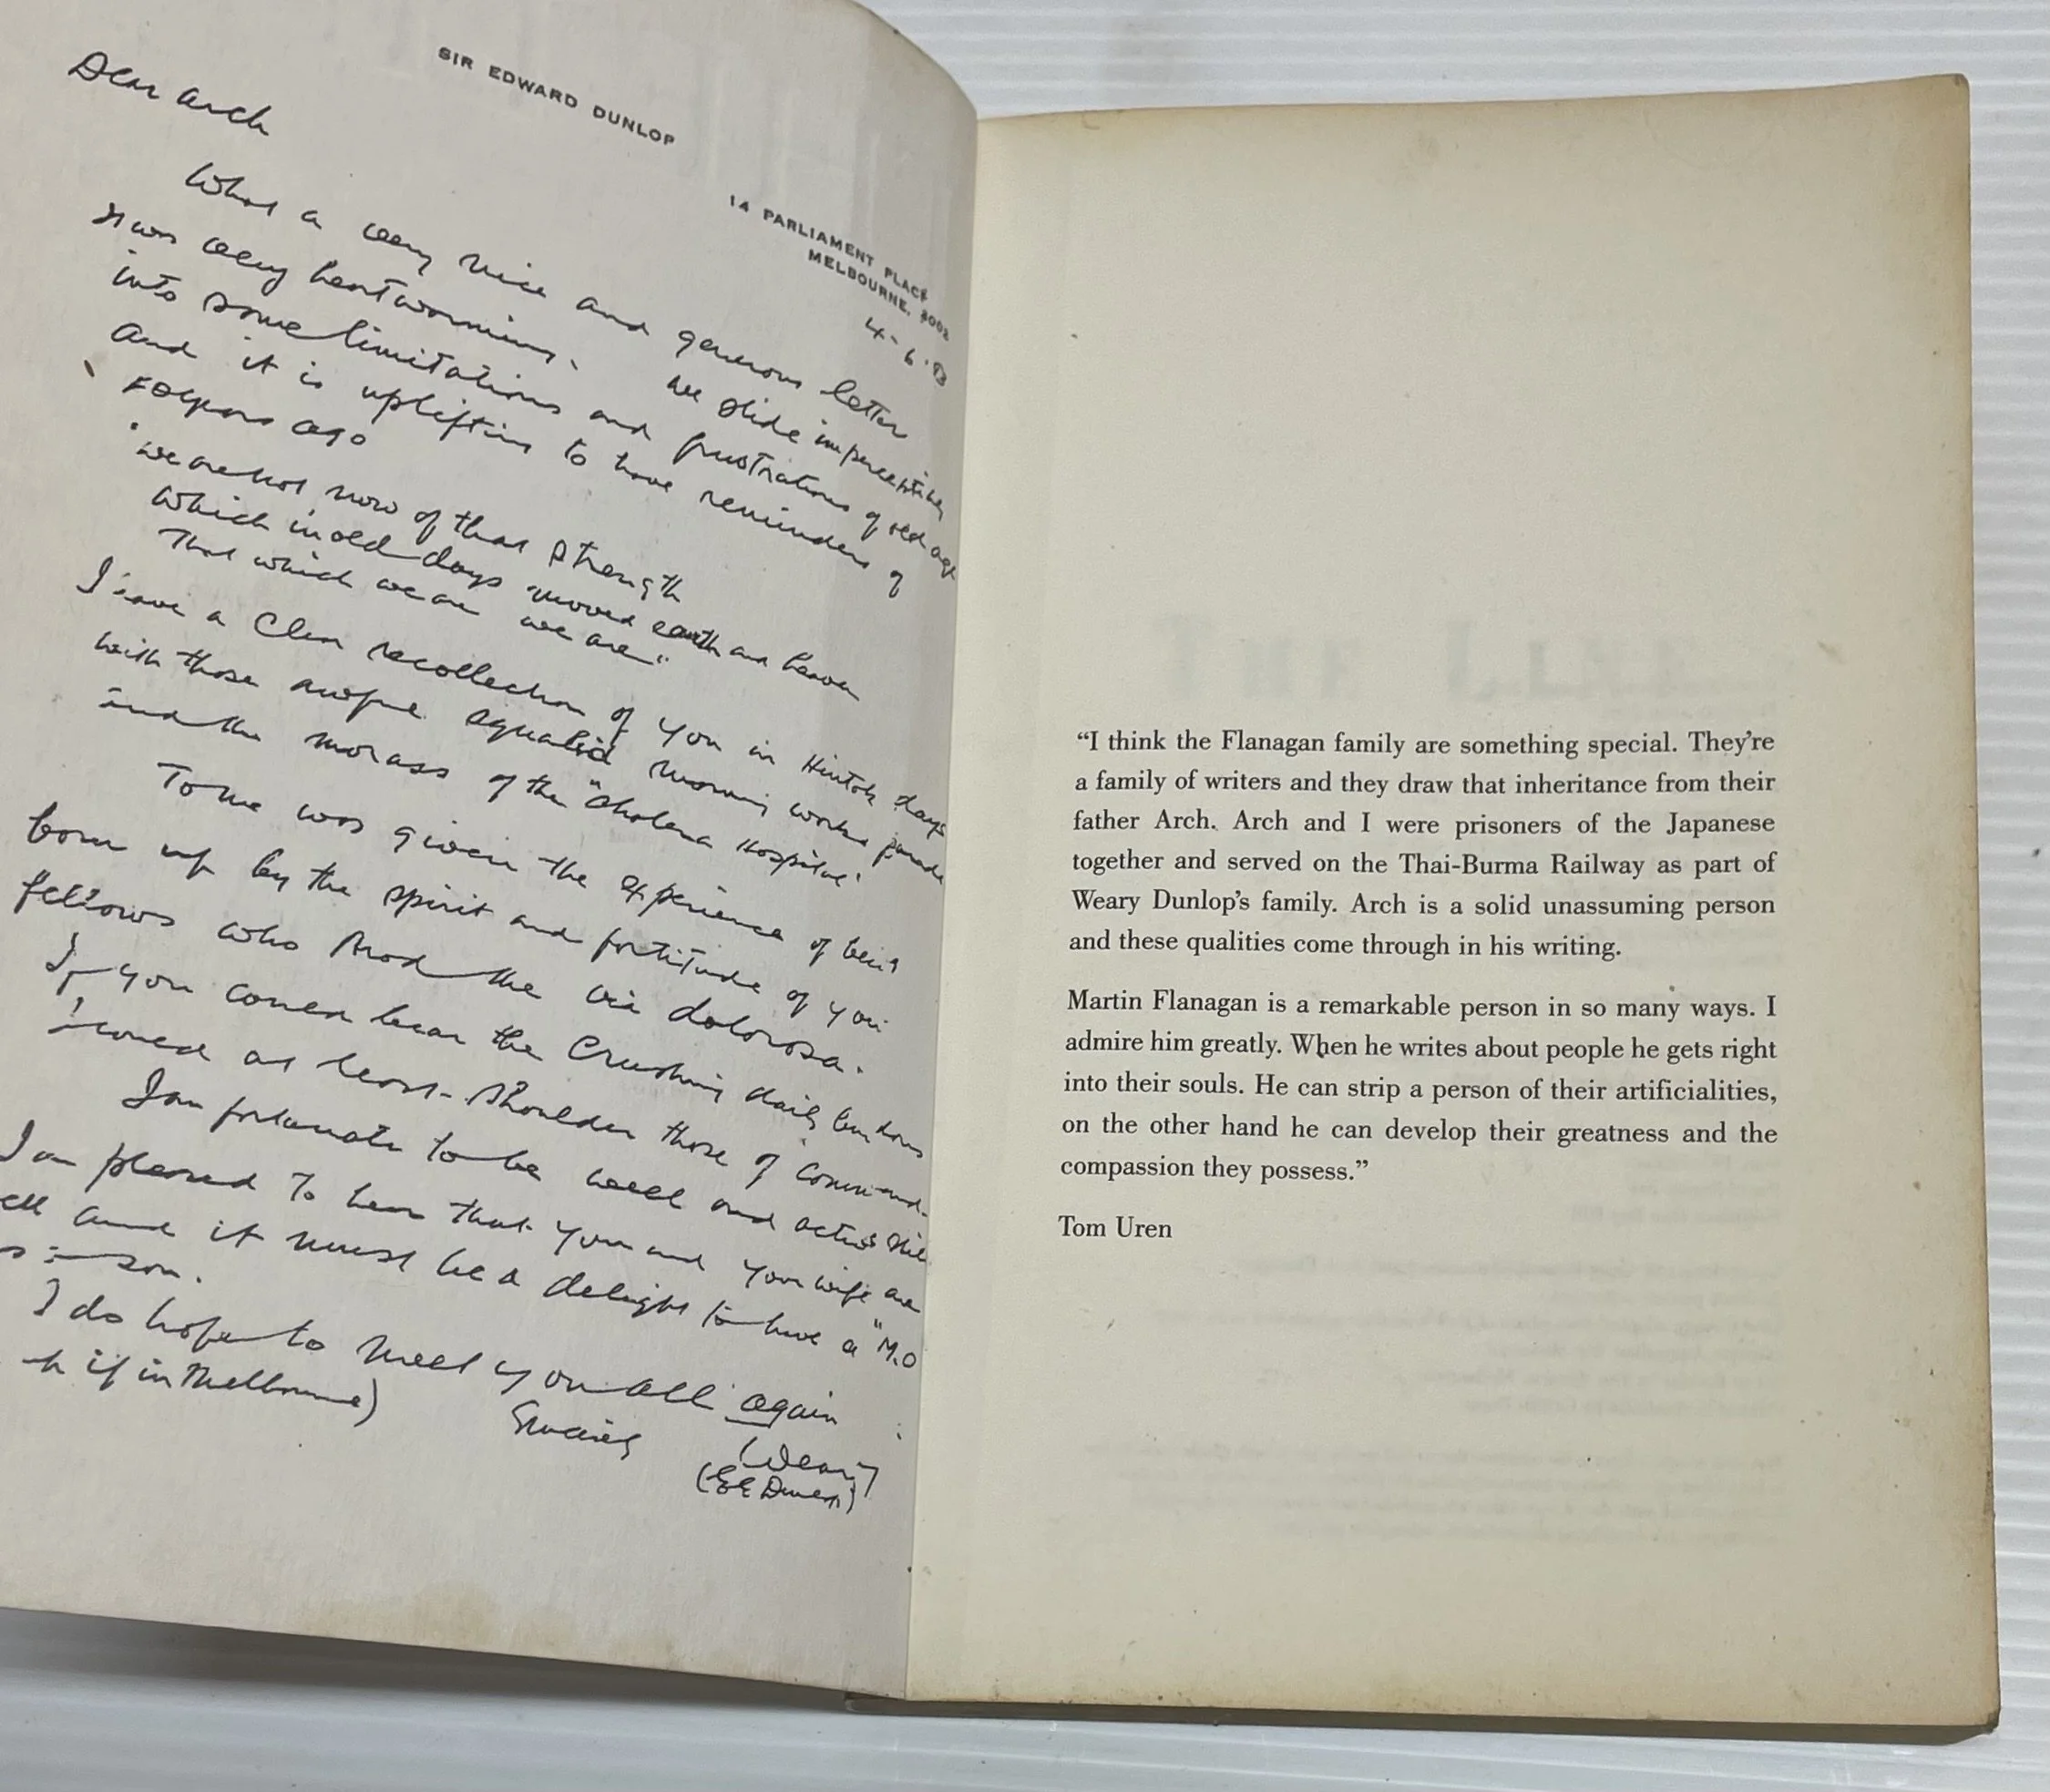 SIR EDWARD DUNLOP
14 PARLIAMENT PLACE
MELBOURNE, 3002
Dear Arch
What a very nice and generous letter
It was very heartwarming. We slide imperceptibly
into some limitations and frustrations of old age
and it is uplifting to have reminders of
years ago
"We are not now of that strength
which in old days moved earth and heaven
That which we are we are"
I have a clear recollection of you in Hintok days
with those awful squalid morning works parade
and the morass of the "Cholera Hospital"
To me was given the experience of being
born up by the spirit and fortitude of you
fellows who trod the via dolorosa.
If you could bear the crushing daily burdens
I could at least shoulder those of command.
I am fortunate to be well and active still
I am pleased to hear that you and your wife are
and it must be a delight to have a "M.O
son.
I do hope to meet you all again
if in Melbourne)
Sincerely
(Weary)
(E E Dunlop)
“I think the Flanagan family are something special. They’re
a family of writers and they draw that inheritance from their
father Arch. Arch and I were prisoners of the Japanese
together and served on the Thai-Burma Railway as part of
Weary Dunlop’s family. Arch is a solid unassuming person
and these qualities come through in his writing.
Martin Flanagan is a remarkable person in so many ways. I
admire him greatly. When he writes about people he gets right
into their souls. He can strip a person of their artificialities,
on the other hand he can develop their greatness and the
compassion they possess.”
Tom Uren